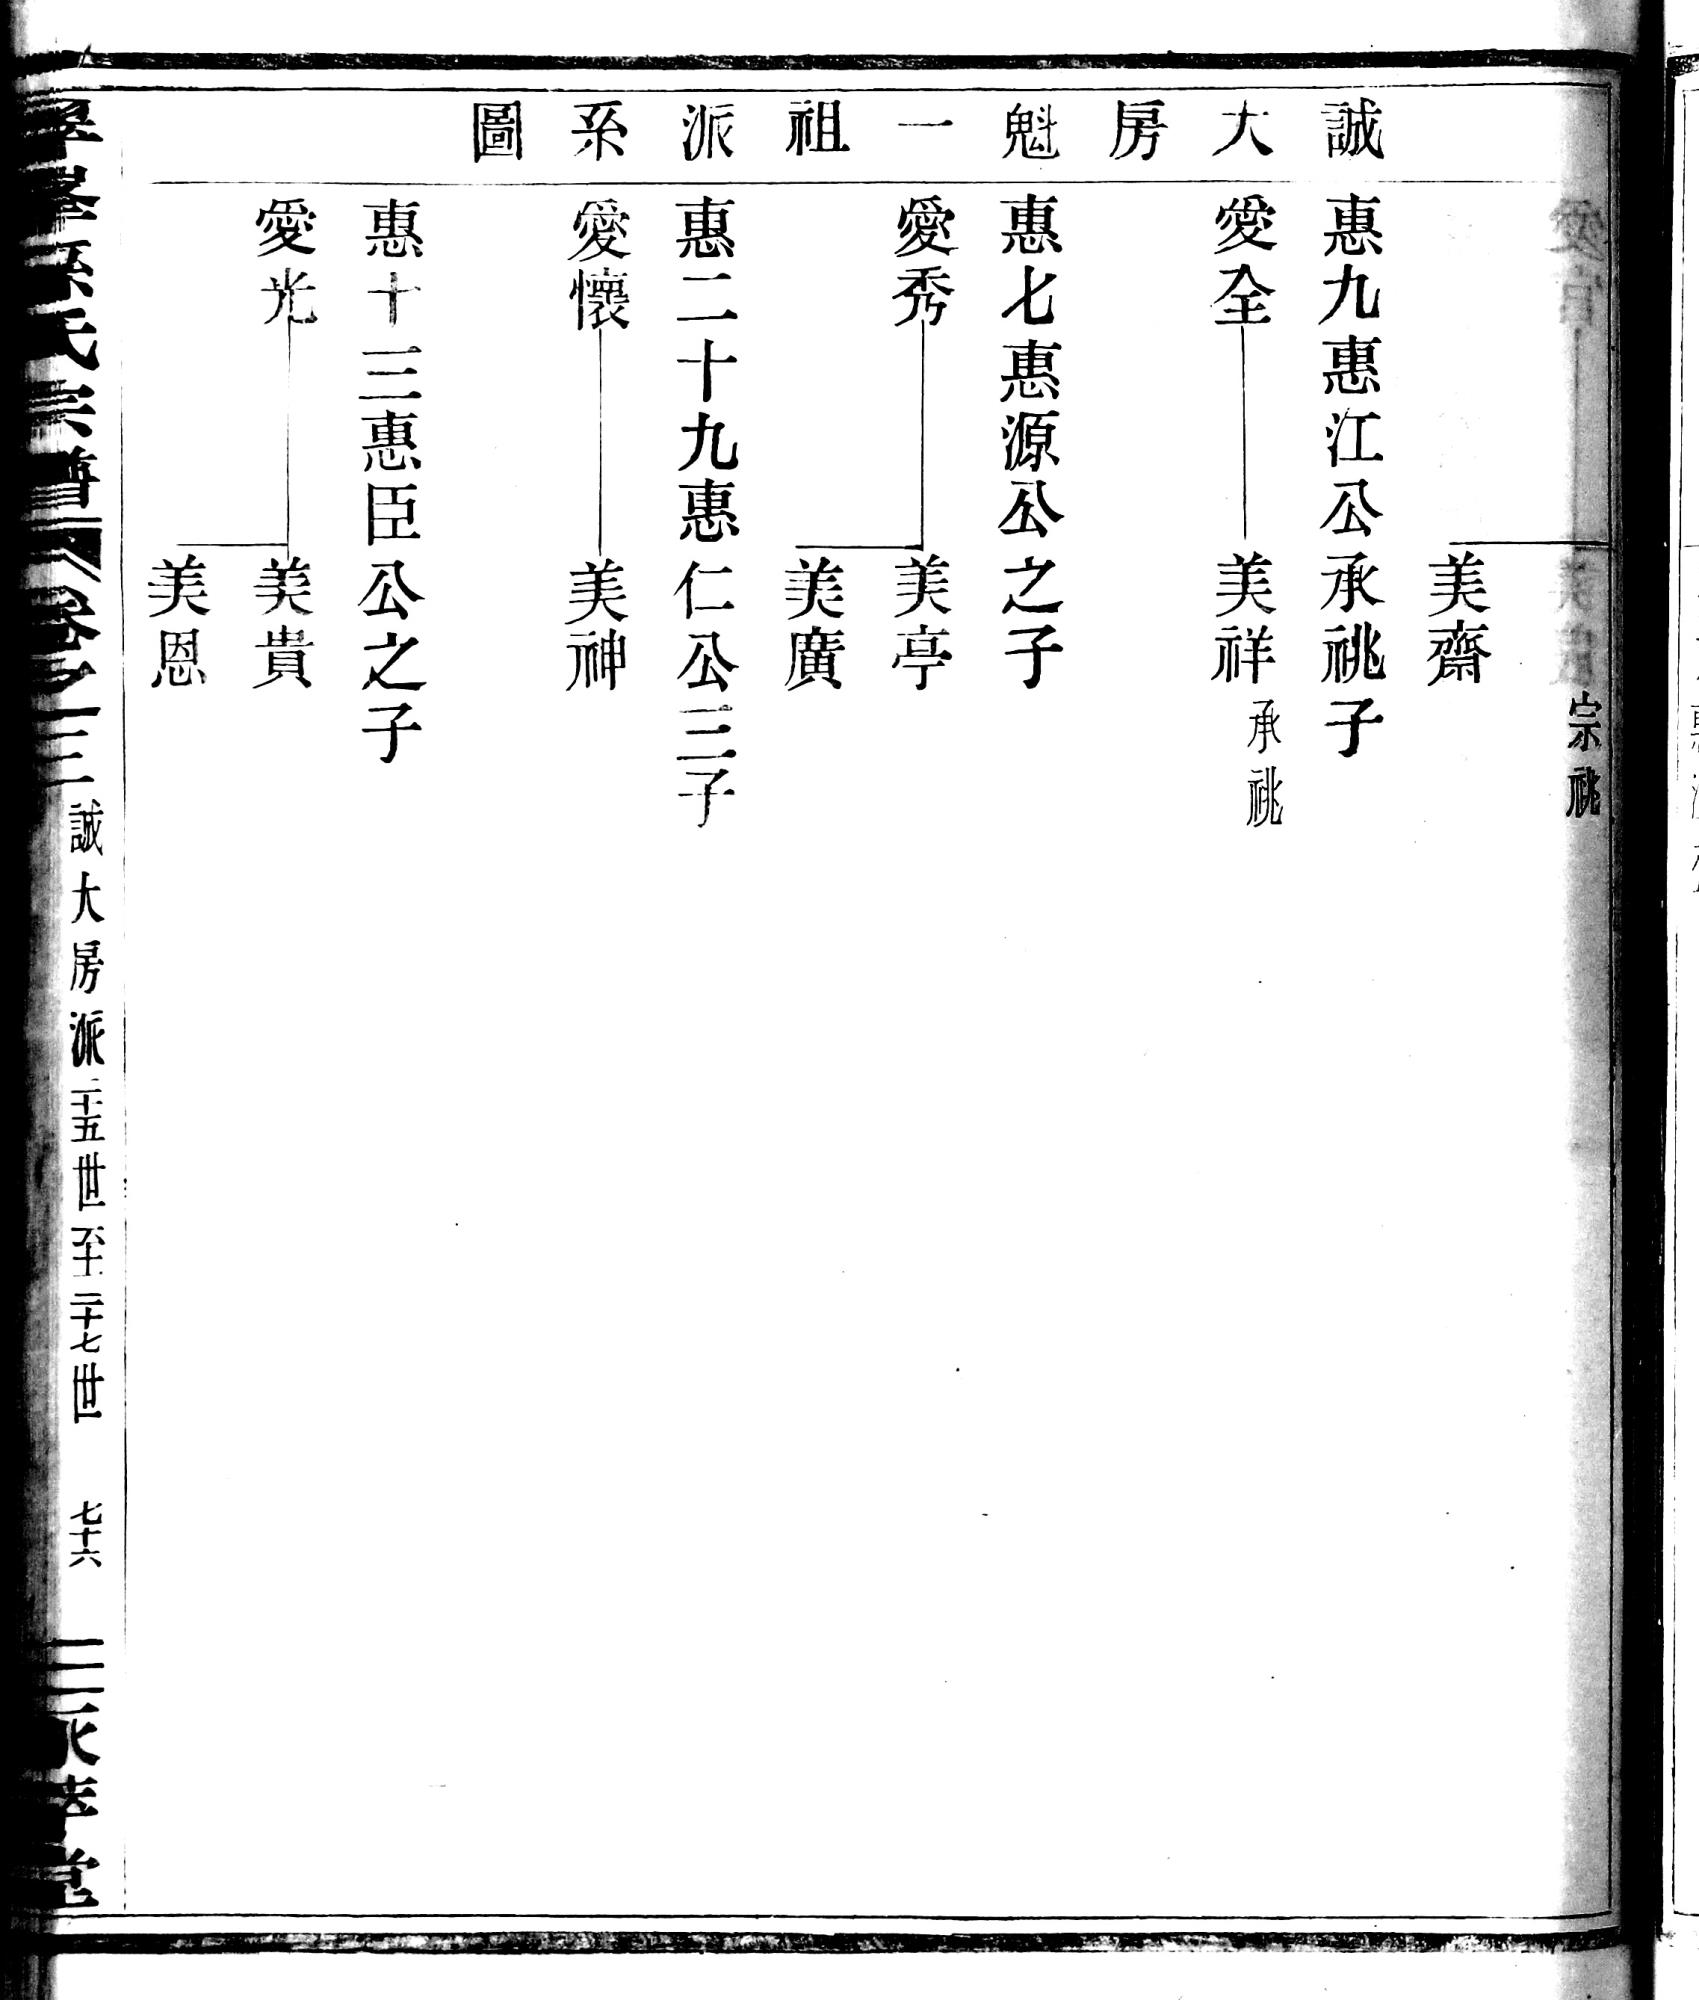 誠大房魁一祖派系圖
愛官
宗祧
美齋
惠九惠江公承祧子
愛全
美祥承祧
惠七惠源公之子
愛秀
美亭
美廣
惠二十九惠仁公三子
愛懷
美神
惠十三惠臣公之子
愛光
美貴
美恩
孫氏宗譜
卷之三
誠大房派二十五世至二十七世
七十六
堂